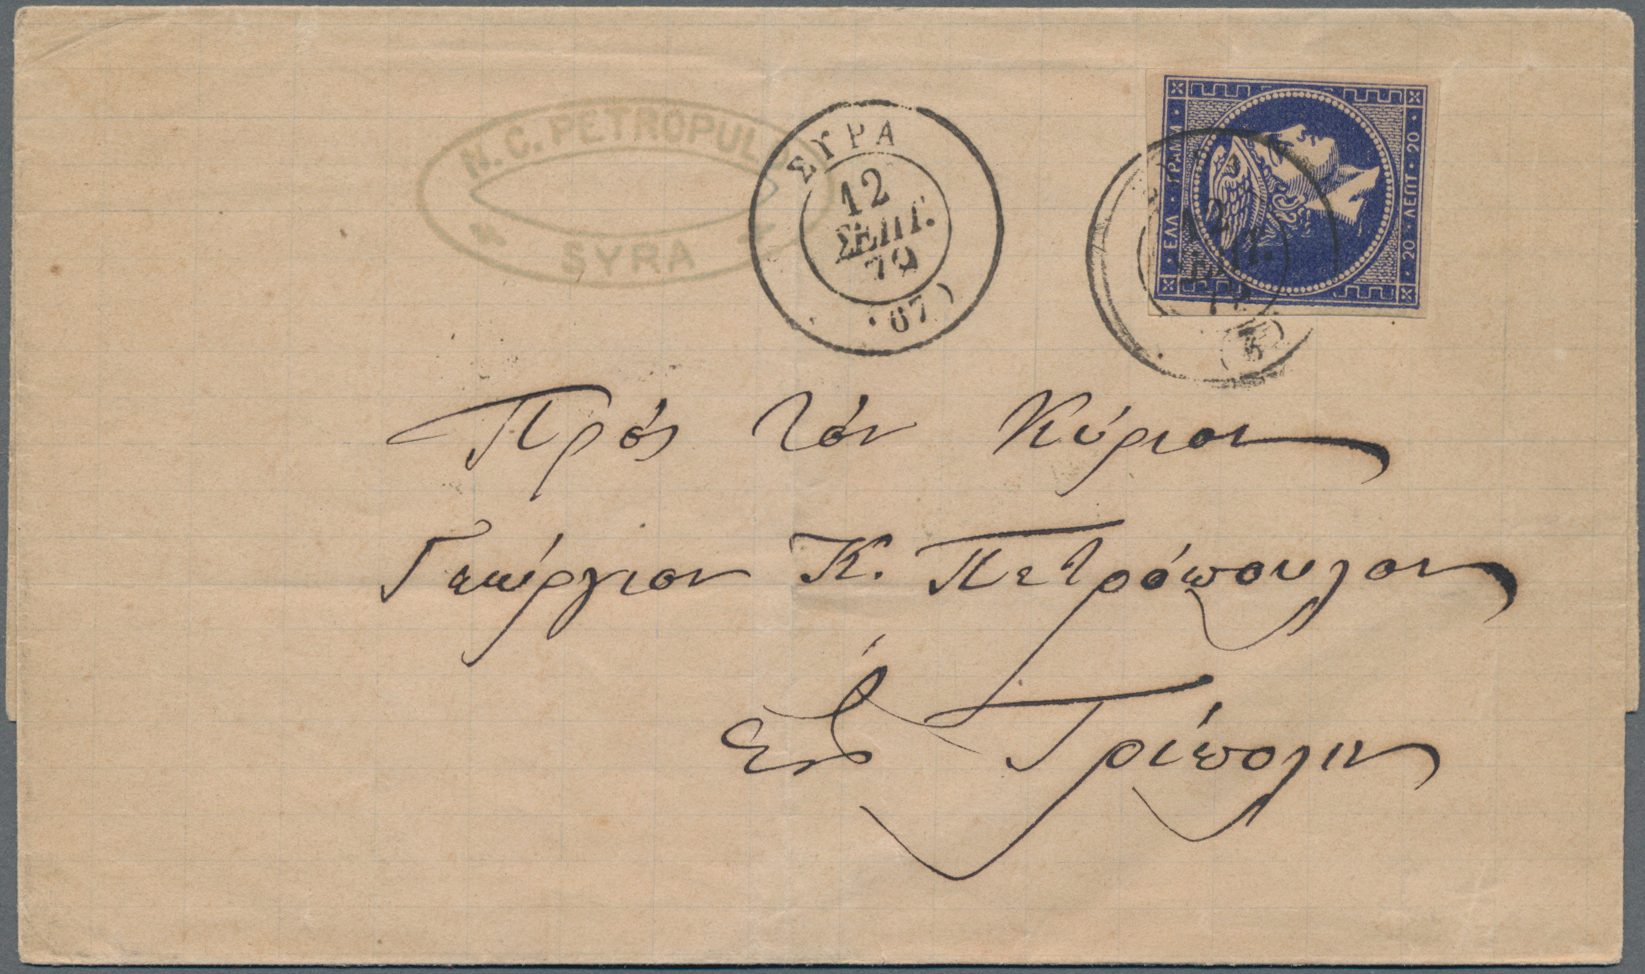 N. C. PETROPUL
SYRA
ΣΥΡΑ
12
ΣΕΠΤ.
72
(67)
ΕΛΛ · ΓΡΑΜΜ
20 · ΛΕΠΤ · 20
12
Πρὸς τὸν Κύριον
Γεώργιον Κ. Πετρόπουλον
Εἰς Τρίπολιν